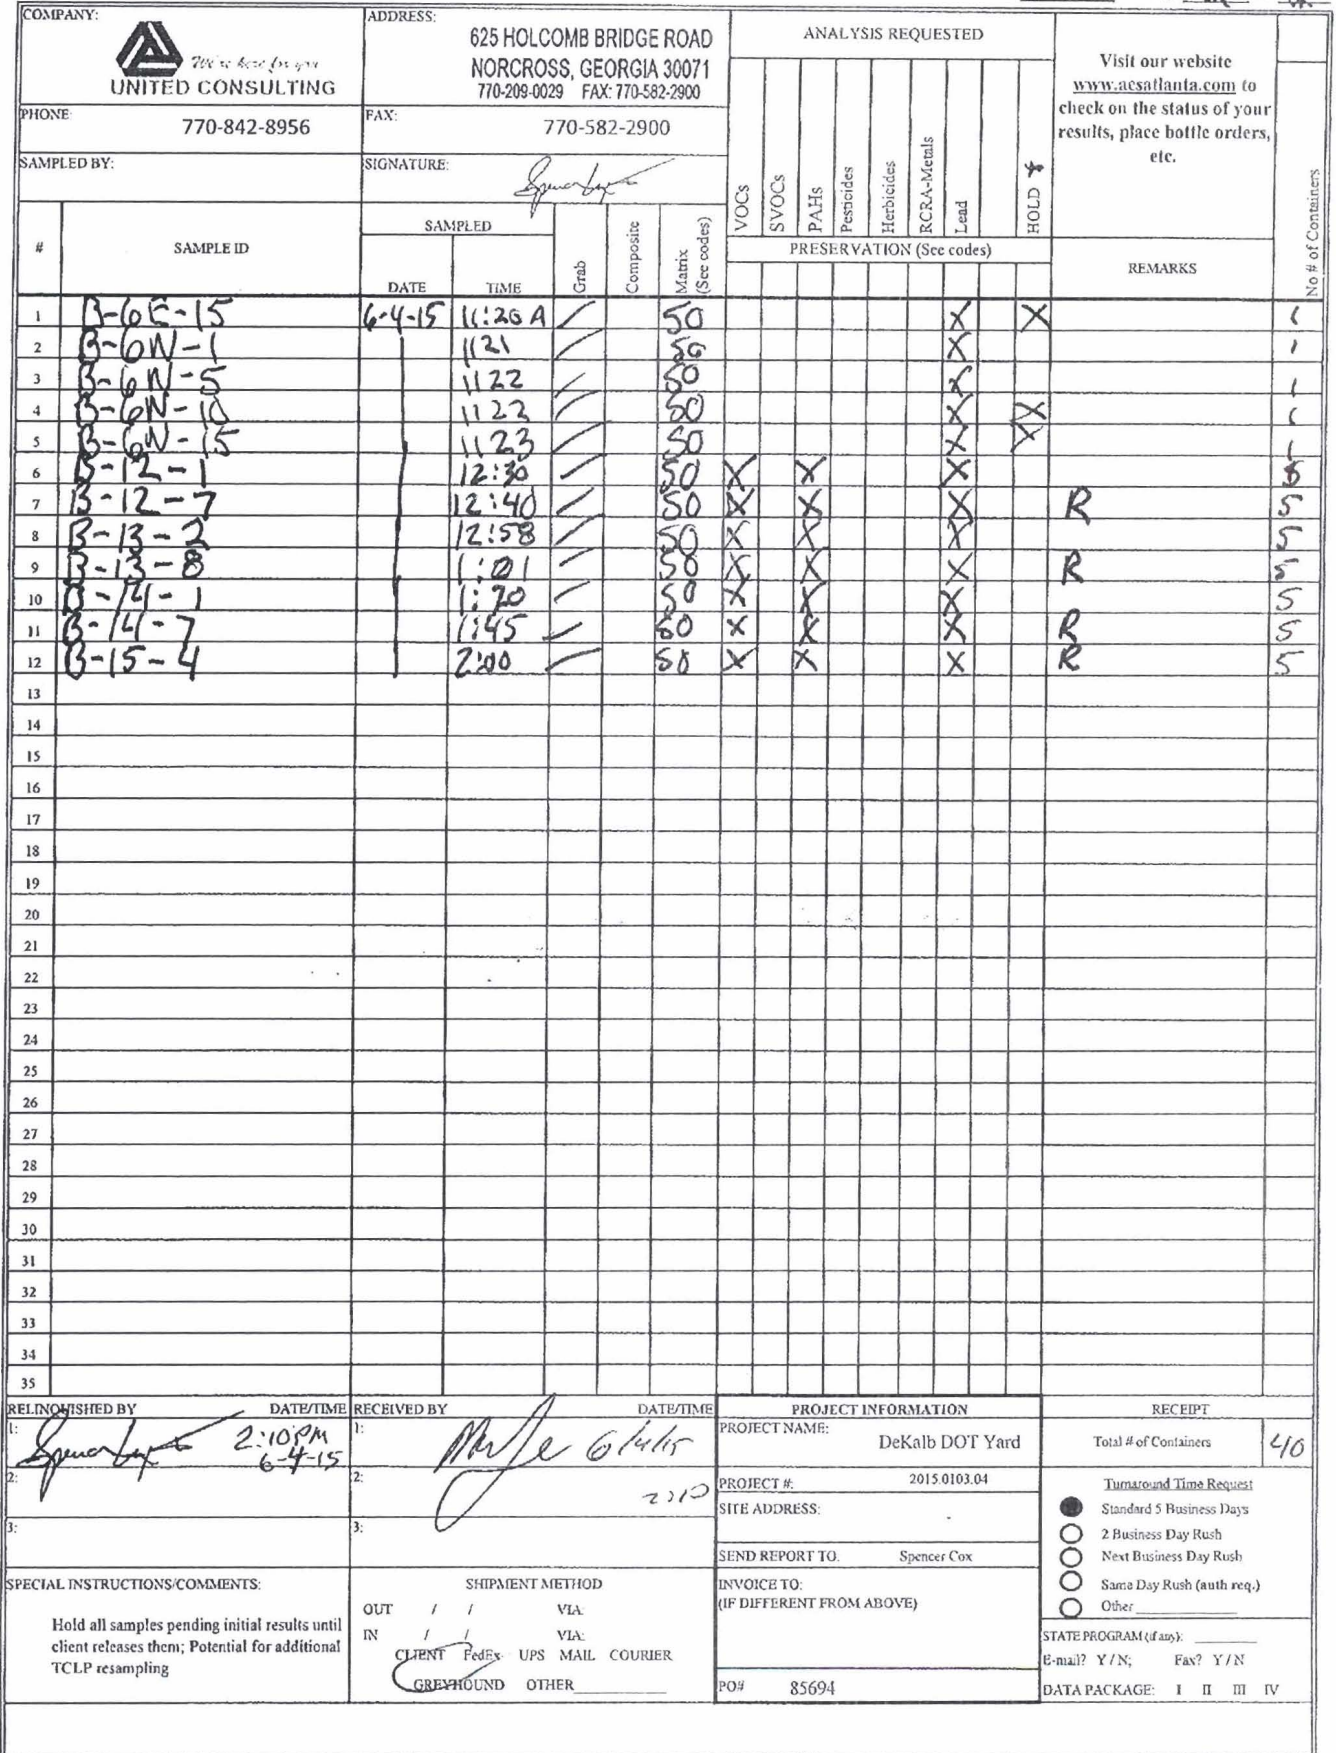 COMPANY:
We're here for you
UNITED CONSULTING
ADDRESS:
625 HOLCOMB BRIDGE ROAD
NORCROSS, GEORGIA 30071
770-209-0029 FAX: 770-582-2900
PHONE: 770-842-8956
FAX: 770-582-2900
SAMPLED BY:
SIGNATURE:
ANALYSIS REQUESTED
Visit our website
www.acsatlanta.com to
check on the status of your
results, place bottle orders,
etc.
# SAMPLE ID
SAMPLED
DATE TIME
Grab
Composite
Matrix
(See codes)
VOCs
SVOCs
PAHs
Pesticides
Herbicides
RCRA-Metals
Lead
HOLD *
PRESERVATION (See codes)
REMARKS
No # of Containers
1 B-6E-15 6-4-15 11:20 A SO X X 1
2 B-6W-1 1121 SO X 1
3 B-6W-5 1122 SO X 1
4 B-6W-10 1122 SO X X 1
5 B-6W-15 1123 SO X X 1
6 B-12-1 12:30 SO X X X 5
7 B-12-7 12:40 SO X X X R 5
8 B-13-2 12:58 SO X X X 5
9 B-13-8 1:01 SO X X X R 5
10 B-14-1 1:20 SO X X X 5
11 B-14-7 1:45 SO X X X R 5
12 B-15-4 2:00 SO X X X R 5
13
14
15
16
17
18
19
20
21
22
23
24
25
26
27
28
29
30
31
32
33
34
35
RELINQUISHED BY DATE/TIME
1: 2:10 PM
6-4-15
2:
3:
RECEIVED BY DATE/TIME
1: 6/4/15
2: 2:10
3:
PROJECT INFORMATION
PROJECT NAME:
DeKalb DOT Yard
PROJECT #: 2015.0103.04
SITE ADDRESS:
SEND REPORT TO: Spencer Cox
INVOICE TO:
(IF DIFFERENT FROM ABOVE)
PO# 85694
RECEIPT
Total # of Containers 40
Turnaround Time Request
Standard 5 Business Days
2 Business Day Rush
Next Business Day Rush
Same Day Rush (auth req.)
Other
STATE PROGRAM (if any):
E-mail? Y / N; Fax? Y / N
DATA PACKAGE: I II III IV
SPECIAL INSTRUCTIONS/COMMENTS:
Hold all samples pending initial results until
client releases them; Potential for additional
TCLP resampling
SHIPMENT METHOD
OUT / / VIA:
IN / / VIA:
CLIENT FedEx UPS MAIL COURIER
GREYHOUND OTHER